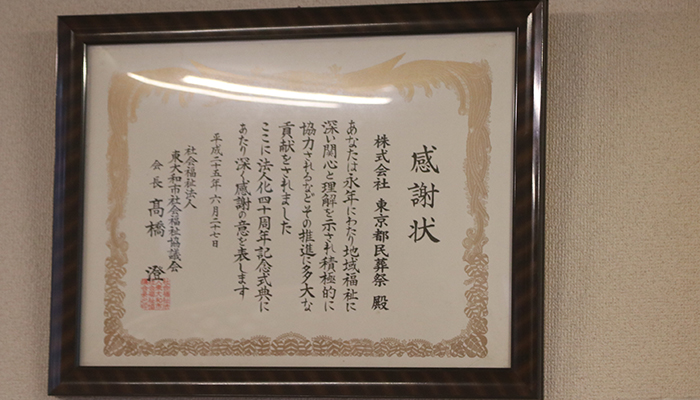 感謝状
株式会社 東京都民葬祭 殿
あなたは永年にわたり地域福祉に
深い関心と理解を示され積極的に
協力されるなどその推進に多大な
貢献をされました
ここに法人化四十周年記念式典に
あたり深く感謝の意を表します
平成二十五年 六月二十七日
社会福祉法人
東大和市社会福祉協議会
会長 髙橋 澄